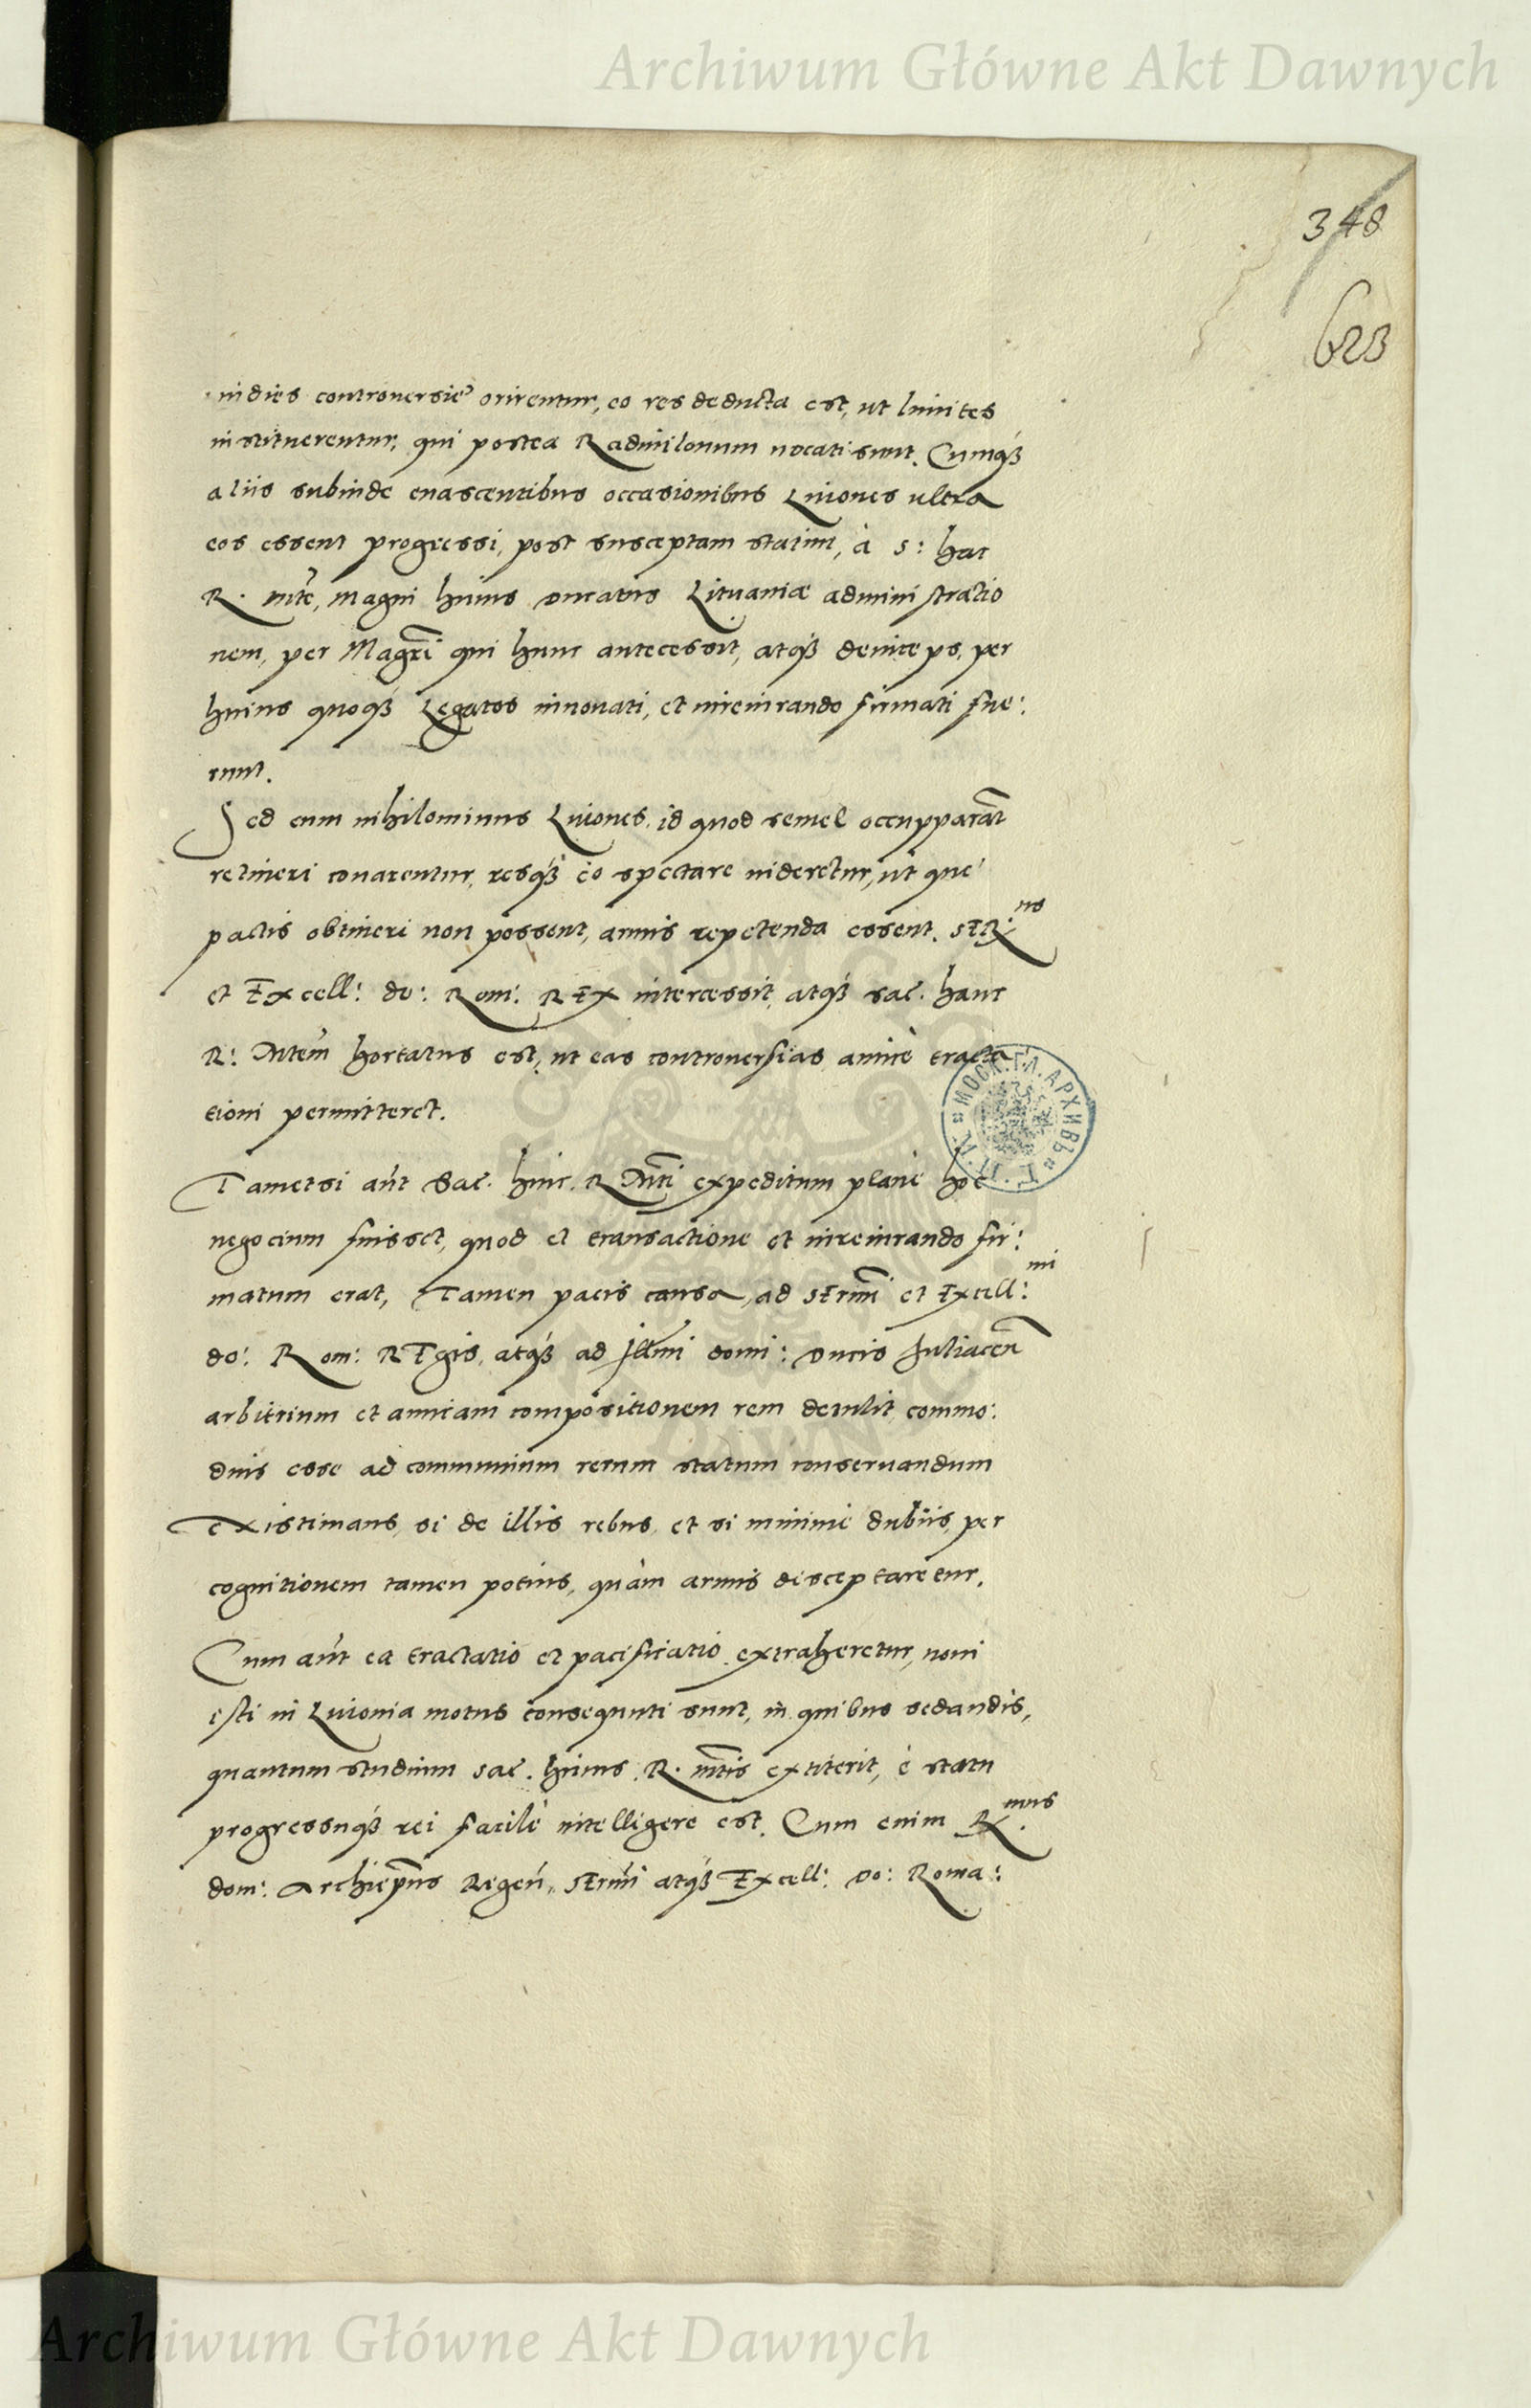 Archiwum Główne Akt Dawnych
348
623
indies controuersie orirentur, eo res deducta est, ut limites
instituerentur, qui postea Radiuilonum uocati sunt. Cumq́ꝫ
aliis subinde enascentibus occasionibus Liuones ultra
eos essent progressi, post susceptam statim, à s: hac
R. mte, Magni huius Ducatus Lituaniæ administratio
nem, per Magrm̃ qui hunc antecessit, atq́ꝫ deinceps, per
huius quoq́ꝫ Legatos innouati, et iureiurando firmati fue:
runt.
Sed cum nihilominus Liuones, id quod semel occupparãt
retineri conarentur, resq́ꝫ eò spectare uideretur, ut quę
pactis obtineri non possent, armis repetenda essent. SER:ns
et Excell: do: Rom: REX intercessit, atq́ꝫ sac. hanc
R: Mtem̃ hortatus est, ut eas controuersias amicè tracta
tioni permitteret.
Tametsi aũt Sac. huic. R Mti expeditum planè hoc
negocium fuisset, quod et transactione et iureiurando fir:
matum erat, Tamen pacis causa, ad SErmi et Excell:mi
do: Rom: REgis, atq́ꝫ ad Illmi domi: Ducis Iuliacen̄
arbitrium et amicam compositionem rem detulit, commo:
dius esse ad communium rerum statum conseruandum
existimans, si de illis rebus, et si minimè dubiis, per
cognitionem tamen potius, quàm armis disceptaretur.
Cum aũt ea tractatio et pacificatio extraheretur, noui
isti in Liuonia motus consequuti sunt, in quibus sedandis,
quantum studium sac. huius R. mtis extiterit, è statu
progressuq́ꝫ rei facilè intelligere est. Cum enim R.mus
dom: Archiep̃us Rigeñ, SErmi atq́ꝫ Excell: Do: Roma:
МОСК. ГЛ. АРХИВЪ
Archiwum Główne Akt Dawnych